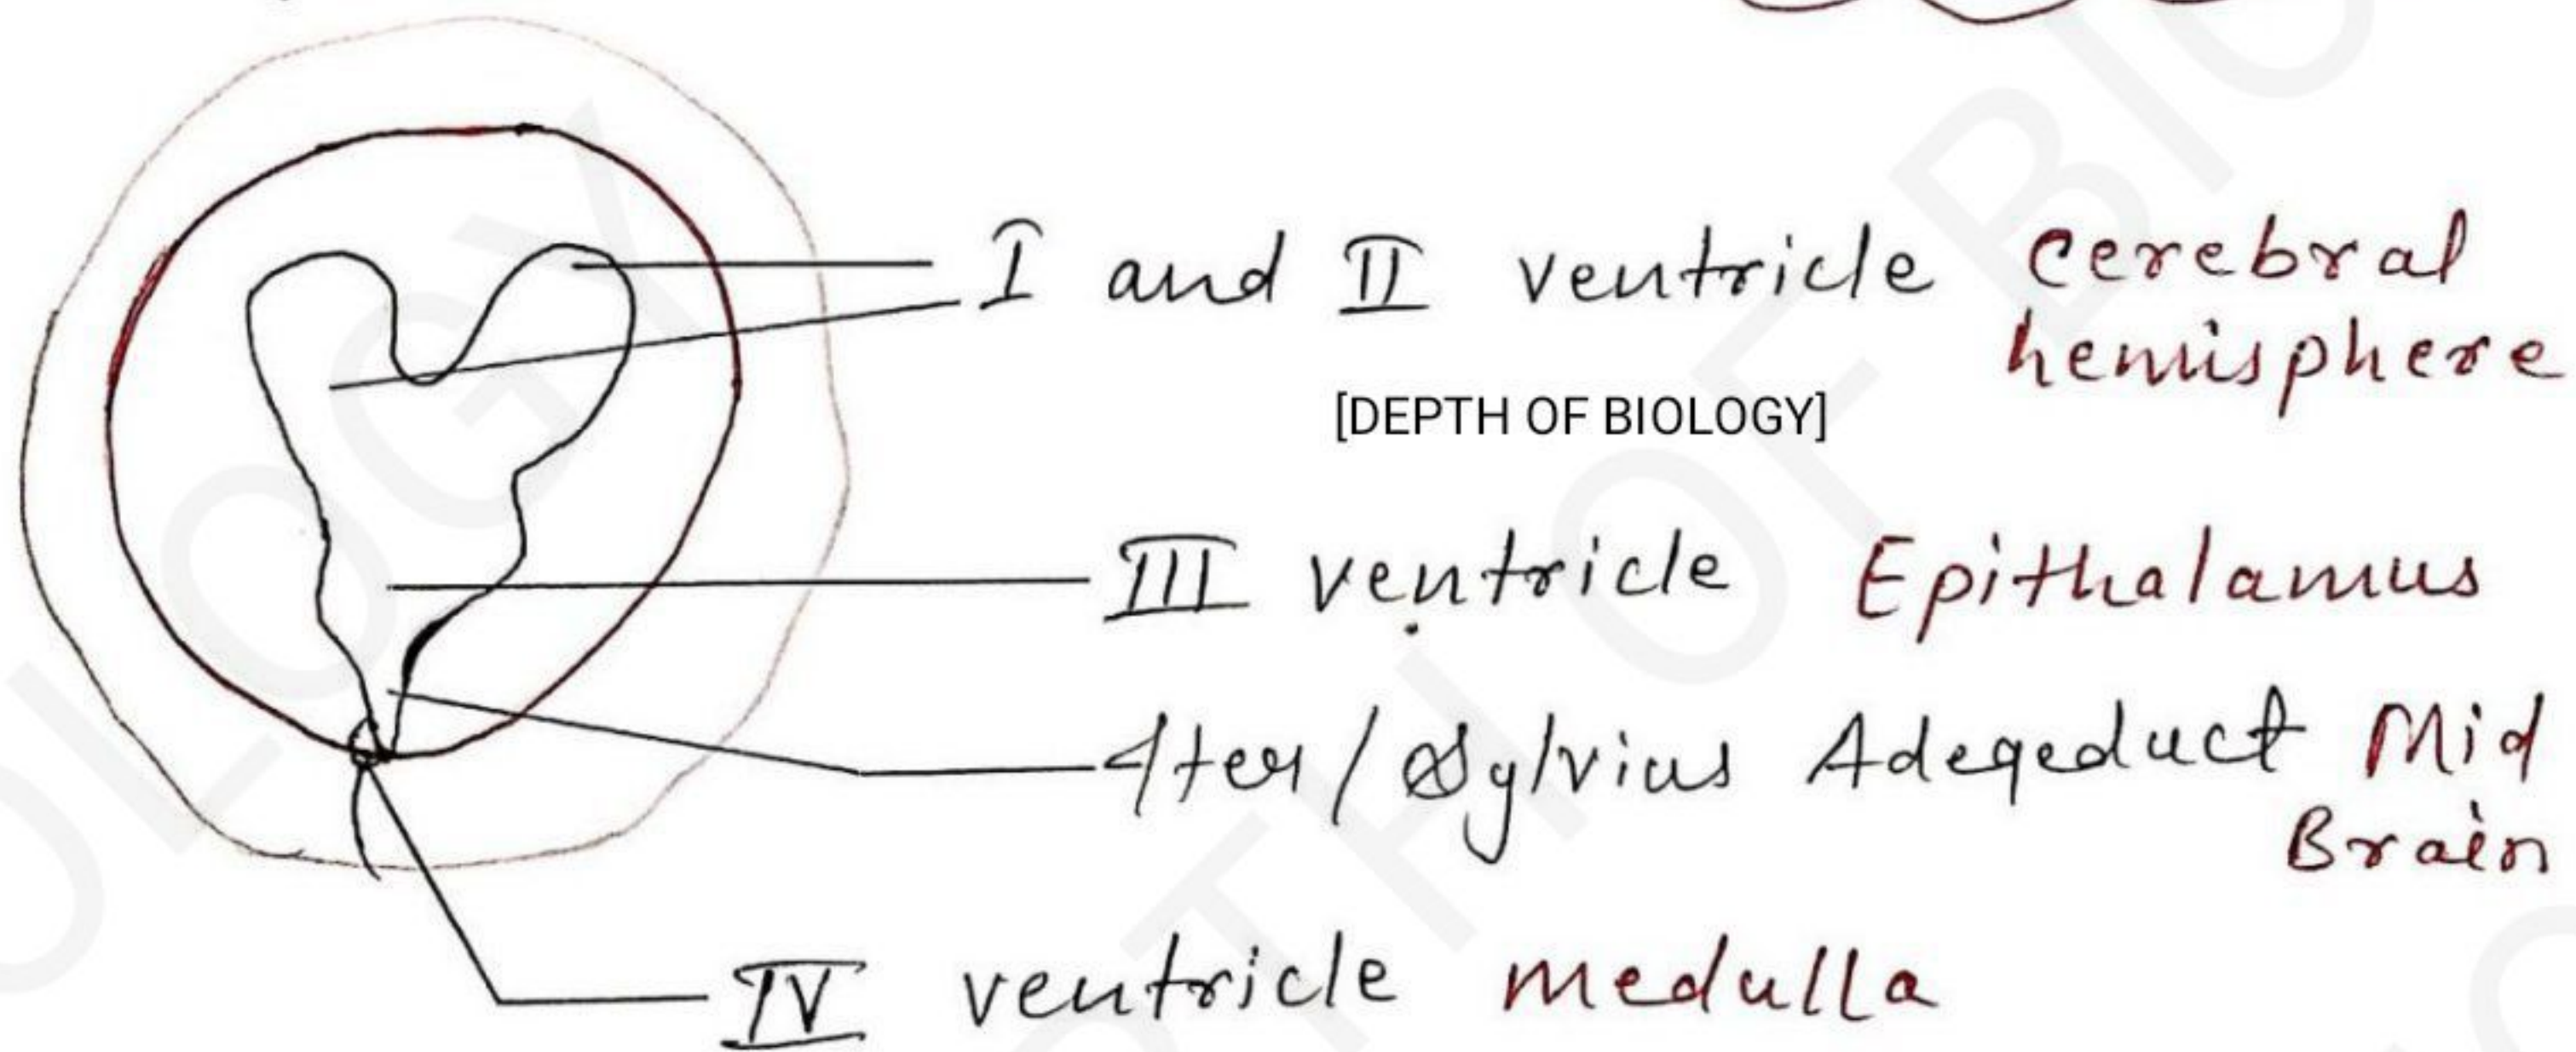 I and II ventricle cerebral
hemisphere
[DEPTH OF BIOLOGY]
III ventricle Epithalamus
Iter / Sylvius Adeqeduct Mid
Brain
IV ventricle medulla